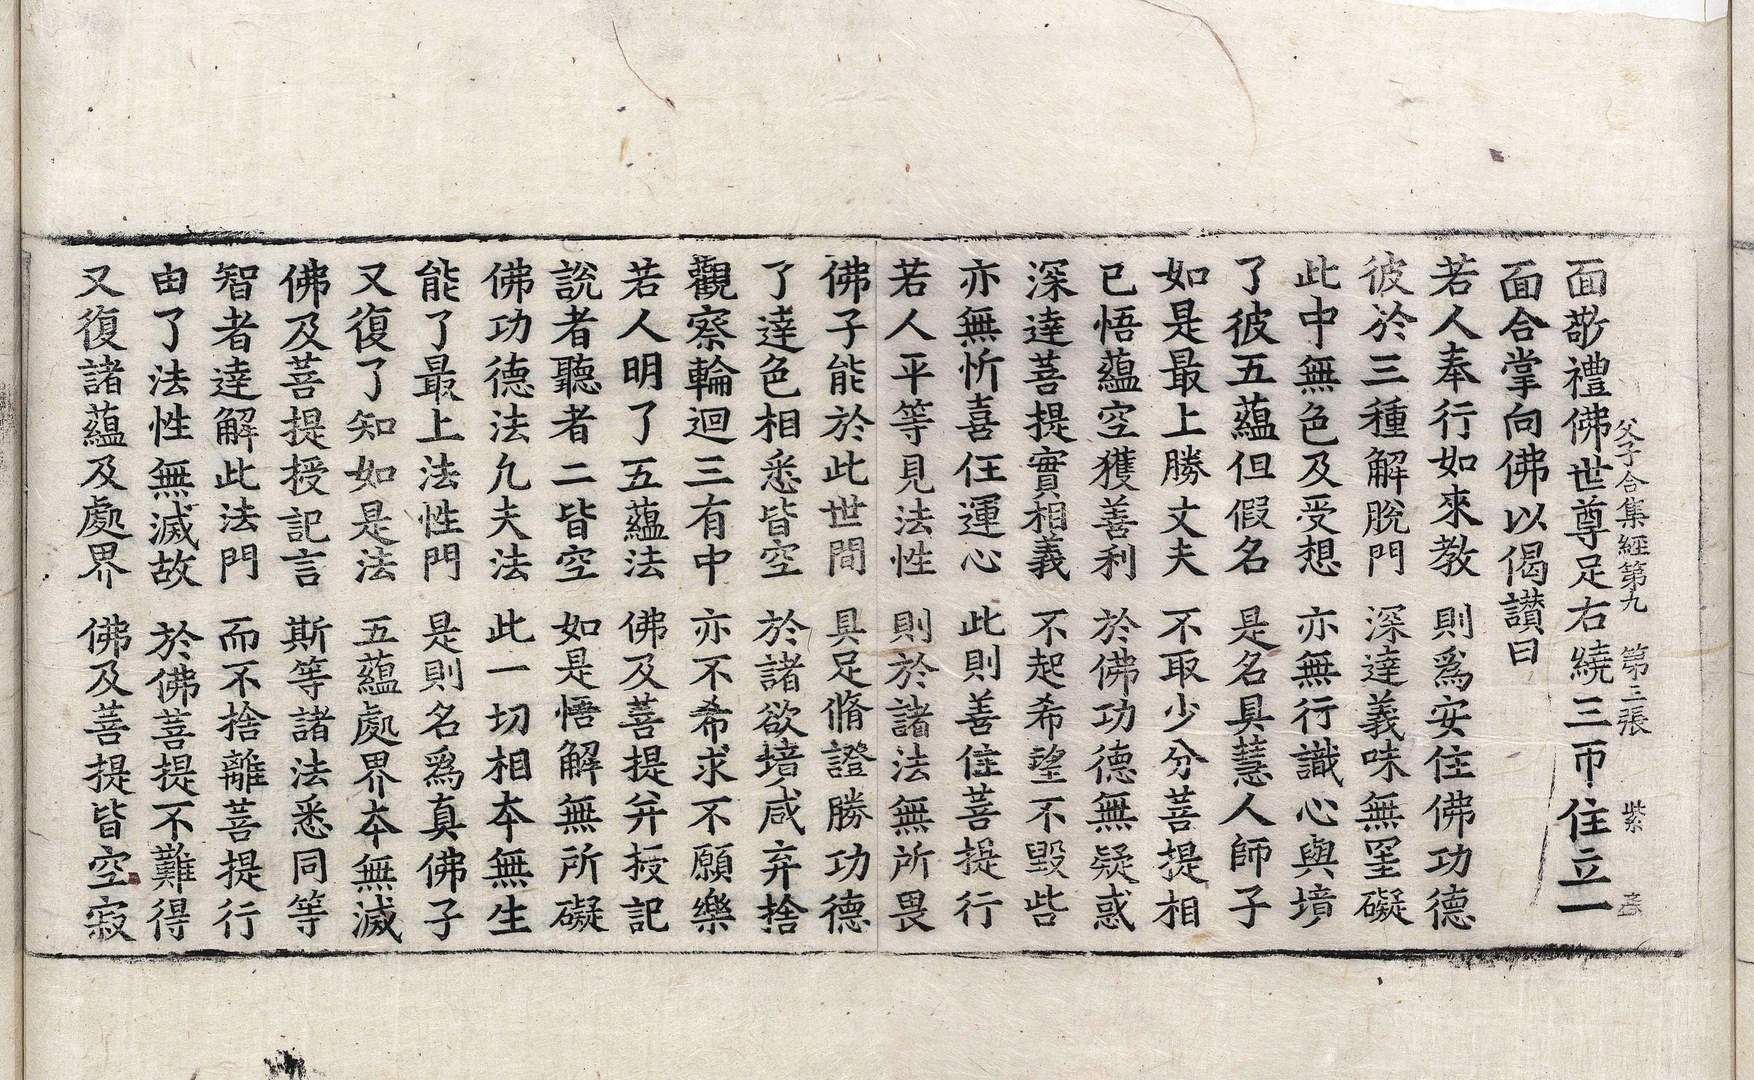 父子合集經第九　第三張　紫
面敬禮佛世尊足右繞三帀住立一
面合掌向佛以偈讚曰
若人奉行如來教　則爲安住佛功德
彼於三種解脫門　深達義味無罣礙
此中無色及受想　亦無行識心與境
了彼五蘊但假名　是名具慧人師子
如是最上勝丈夫　不取少分菩提相
已悟蘊空獲善利　於佛功德無疑惑
深達菩提實相義　不起希望不毀呰
亦無忻喜任運心　此則善住菩提行
若人平等見法性　則於諸法無所畏
佛子能於此世間　具足脩證勝功德
了達色相悉皆空　於諸欲境咸弃捨
觀察輪迴三有中　亦不希求不願樂
若人明了五蘊法　佛及菩提并授記
說者聽者二皆空　如是悟解無所礙
佛功德法凡夫法　此一切相本無生
能了最上法性門　是則名爲真佛子
又復了知如是法　五蘊處界本無滅
佛及菩提授記言　斯等諸法悉同等
智者達解此法門　而不捨離菩提行
由了法性無滅故　於佛菩提不難得
又復諸蘊及處界　佛及菩提皆空寂